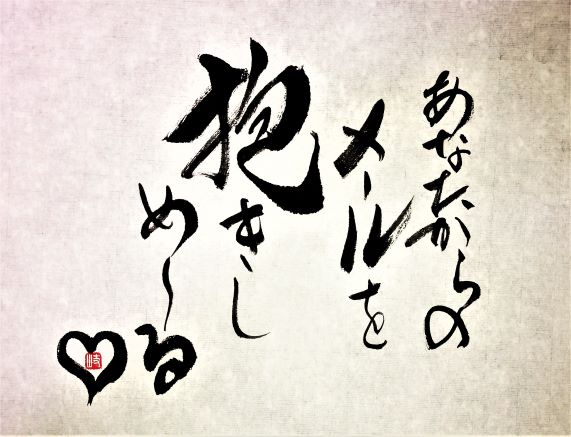 あなたからの
メールを
抱きし
め〜る